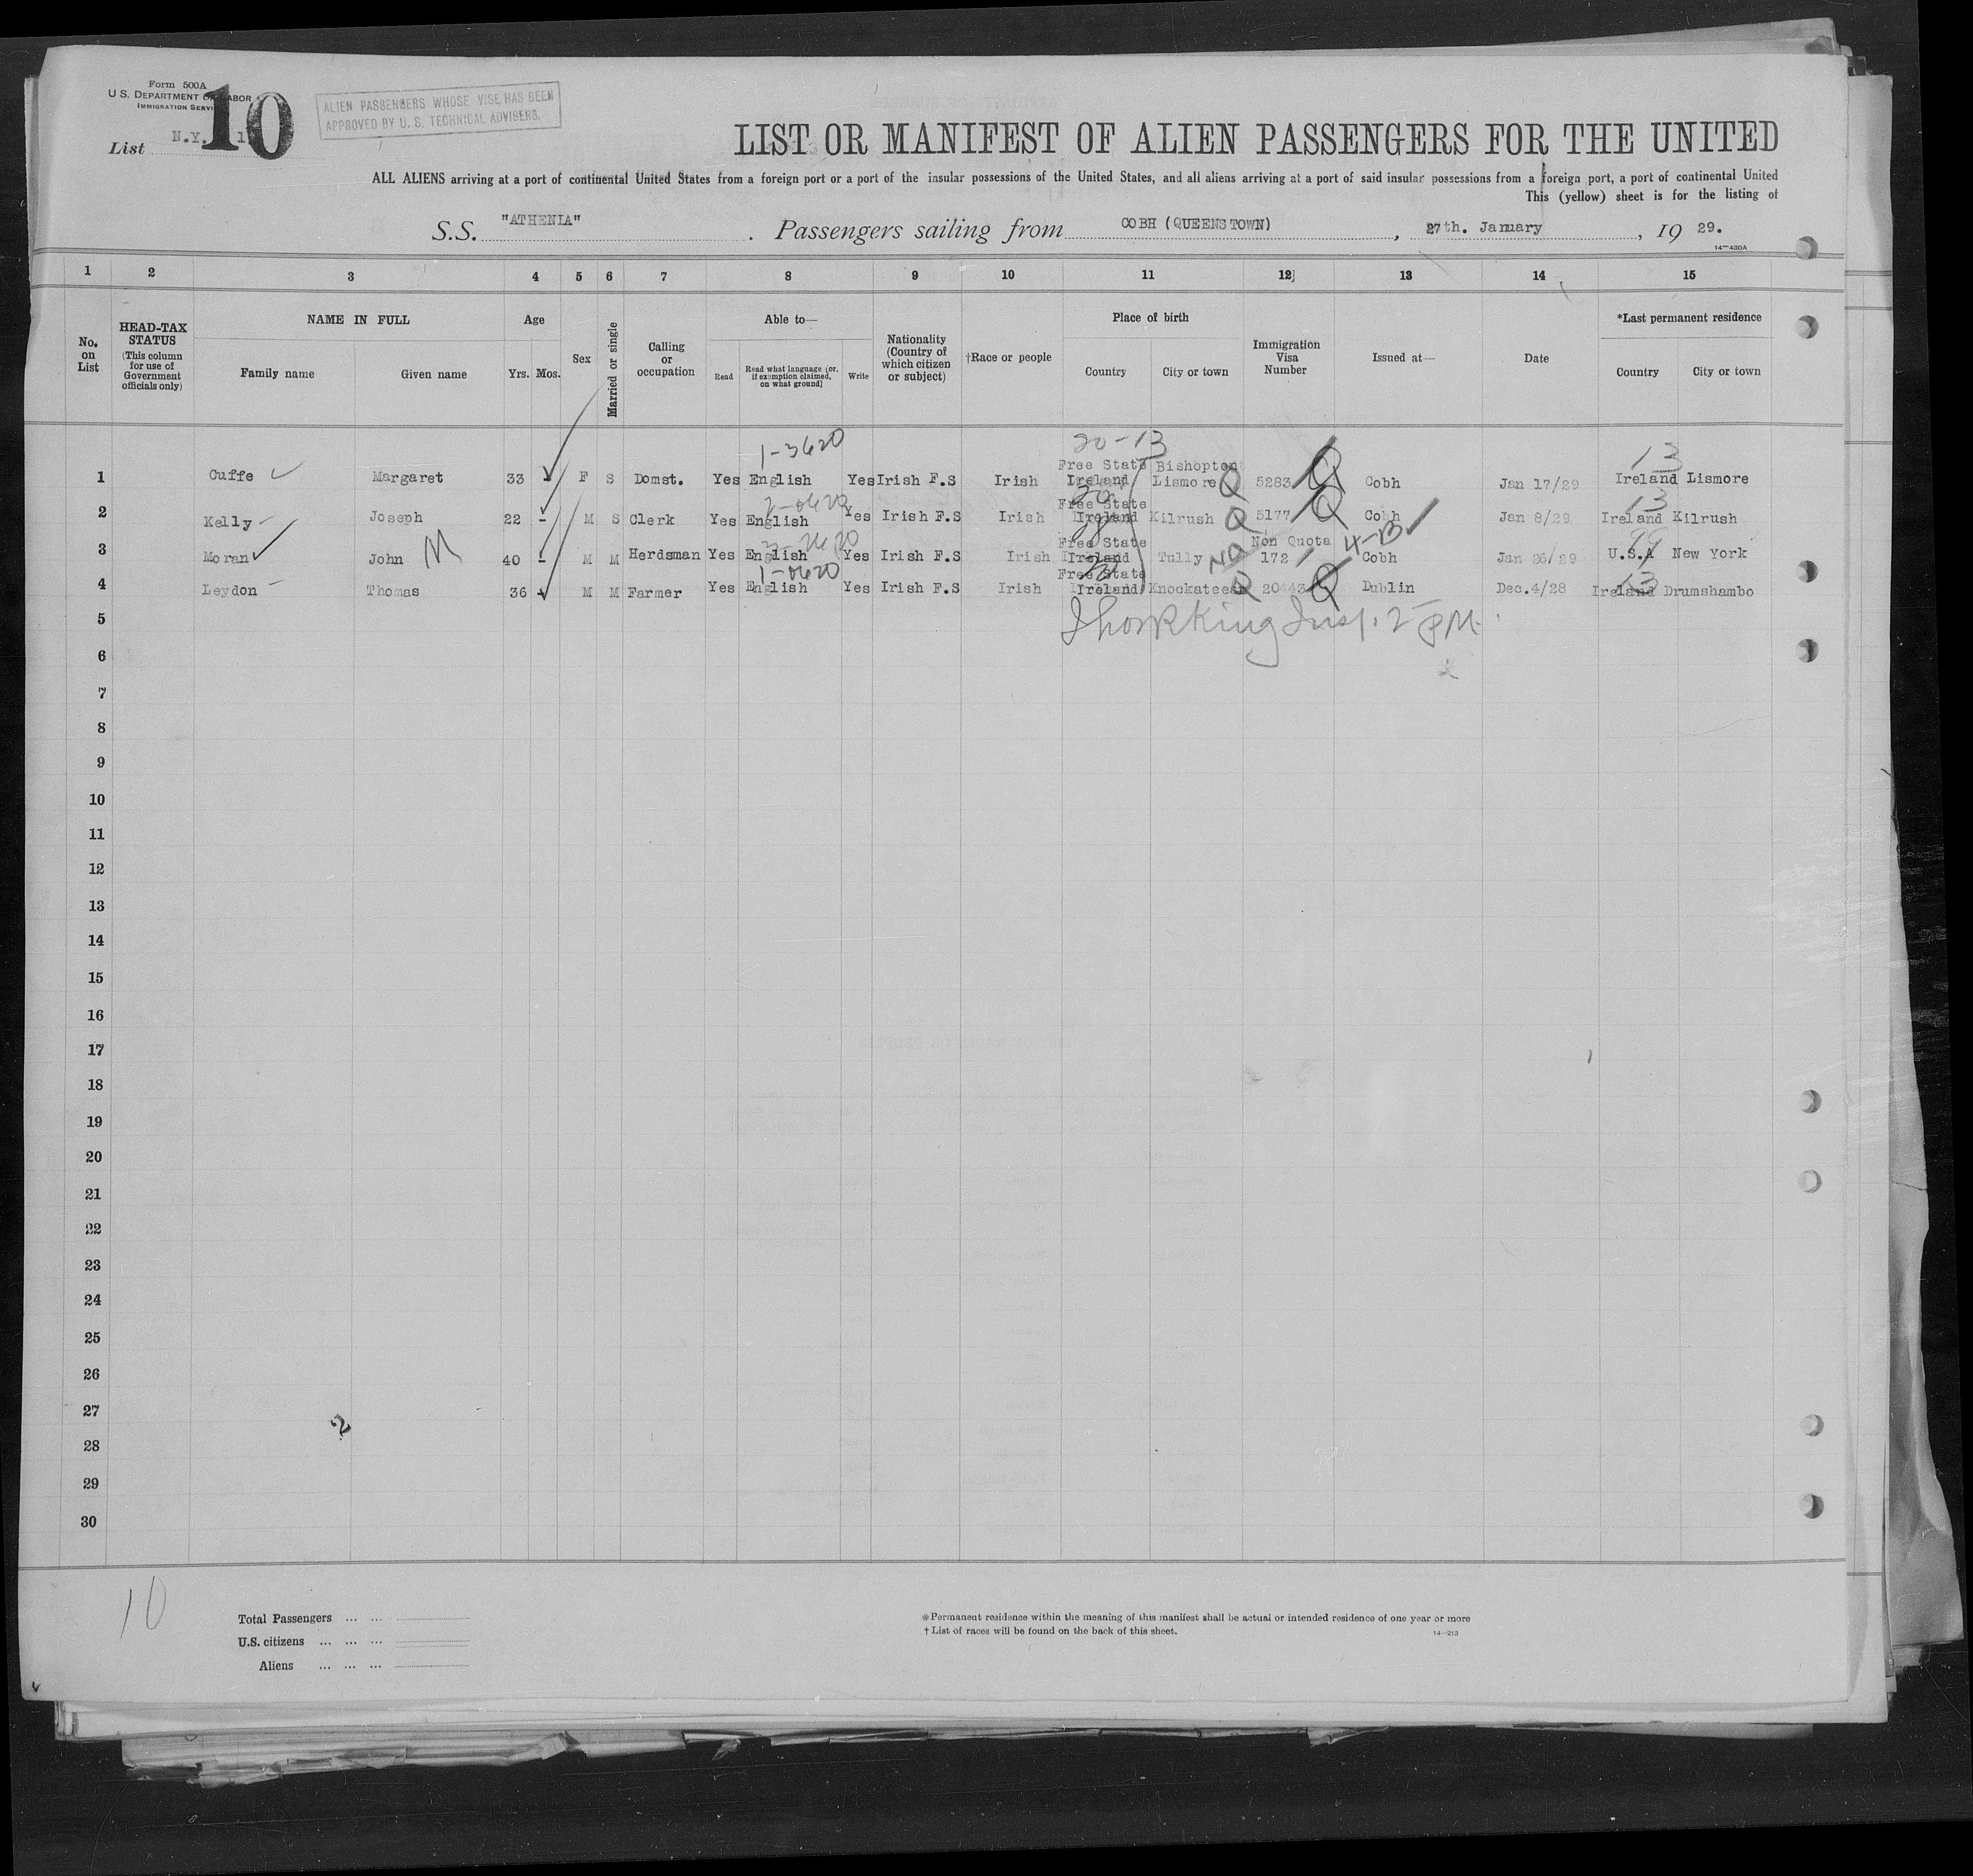 Form 500A
U. S. DEPARTMENT OF LABOR
IMMIGRATION SERVICE
10
ALIEN PASSENGERS WHOSE VISE HAS BEEN
APPROVED BY U. S. TECHNICAL ADVISERS.
List N.Y. 1
LIST OR MANIFEST OF ALIEN PASSENGERS FOR THE UNITED
ALL ALIENS arriving at a port of continental United States from a foreign port or a port of the insular possessions of the United States, and all aliens arriving at a port of said insular possessions from a foreign port, a port of continental United
This (yellow) sheet is for the listing of
S.S. "ATHENIA" . Passengers sailing from COBH (QUEENSTOWN) , 27th. January , 19 29.
14—430A
1 2 3 4 5 6 7 8 9 10 11 12 13 14 15
No. on List
HEAD-TAX STATUS (This column for use of Government officials only)
NAME IN FULL
Family name Given name
Age
Yrs. Mos.
Sex
Married or single
Calling or occupation
Able to—
Read Read what language (or, if exemption claimed, on what ground) Write
Nationality (Country of which citizen or subject)
†Race or people
Place of birth
Country City or town
Immigration Visa Number
Issued at—
Date
*Last permanent residence
Country City or town
1-3620 20-13 13
Free State Bishopton
1 Cuffe Margaret 33 F S Domst. Yes English Yes Irish F.S Irish Ireland Lismore Q 5283 Q Cobh Jan 17/29 Ireland Lismore
2-0620 20 13
Free State
2 Kelly Joseph 22 - M S Clerk Yes English Yes Irish F.S Irish Ireland Kilrush Q 5177 Q Cobh Jan 8/29 Ireland Kilrush
18 99
Free State Non Quota 4-B
3 Moran John M 40 - M M Herdsman Yes English Yes Irish F.S Irish Ireland Tully NQ 172 Cobh Jan 26/29 U.S.A New York
1-0620 13
Free State
4 Leydon Thomas 36 M M Farmer Yes English Yes Irish F.S Irish Ireland Knockateean Q 20443 Q Dublin Dec.4/28 Ireland Drumshambo
King Insp. 2 PM.
5
6
7
8
9
10
11
12
13
14
15
16
17
18
19
20
21
22
23
24
25
26
27
2
28
29
30
10
Total Passengers ... ...
U.S. citizens ... ... ...
Aliens ... ... ...
*Permanent residence within the meaning of this manifest shall be actual or intended residence of one year or more
† List of races will be found on the back of this sheet.
14—213